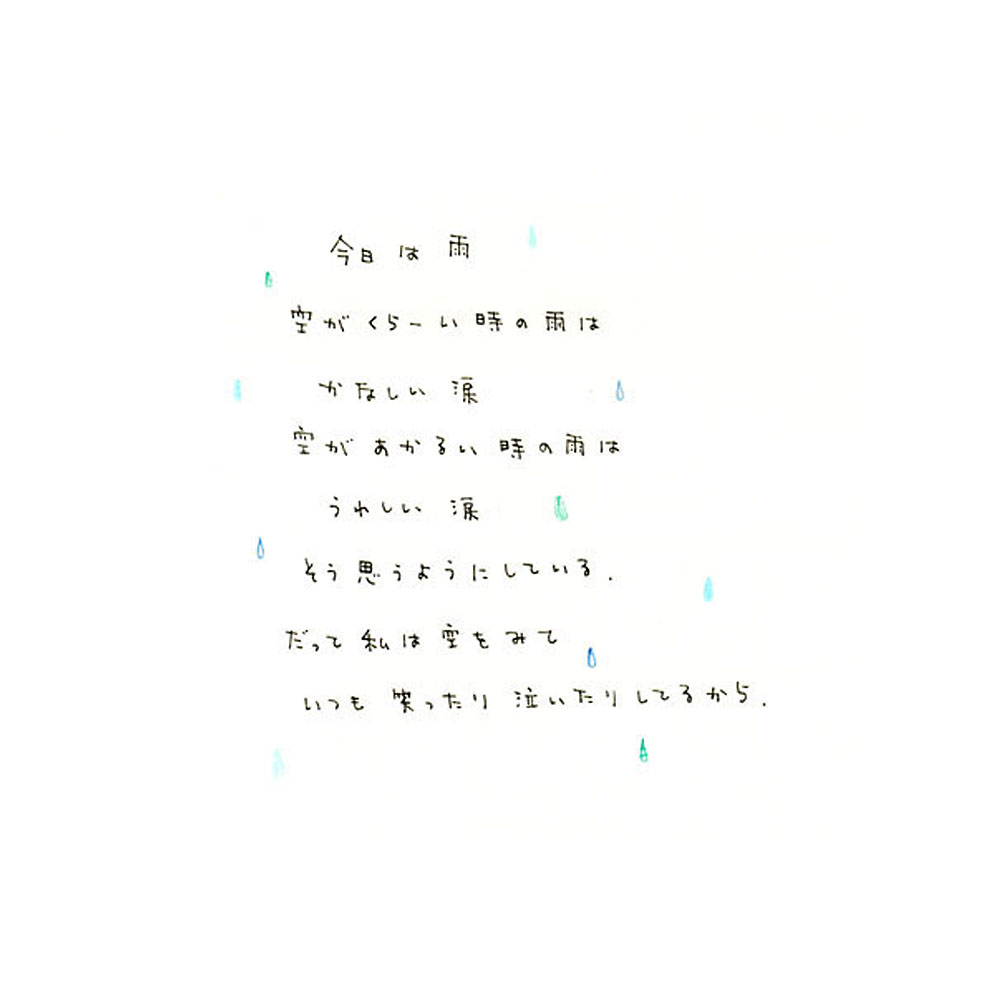 今日は雨
空がくらーい時の雨は
かなしい 涙
空があかるい時の雨は
うれしい 涙
そう思うようにしている.
だって私は空をみて
いつも笑ったり泣いたりしてるから.